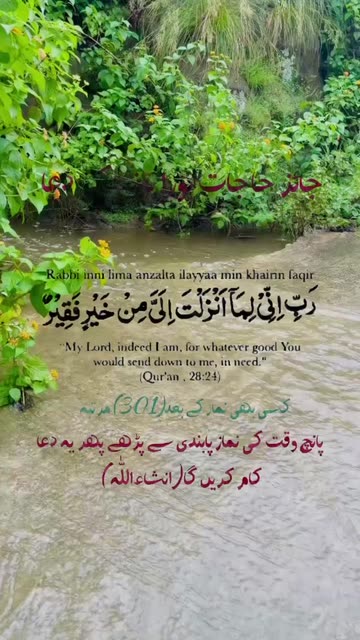 جائز حاجات
Rabbi inni lima anzalta ilayyaa min khairin faqir
رَبِّ اِنِّىۡ لِمَاۤ اَنۡزَلۡتَ اِلَىَّ مِنۡ خَيۡرٍ فَقِيۡرٌ
"My Lord, indeed I am, for whatever good You
would send down to me, in need."
(Qur'an , 28:24)
کسی بھی نماز کے بعد(301) مرتبہ
پانچ وقت کی نماز پابندی سے پڑھے پھر یہ دعا
کام کریں گا(انشاءاللّٰہ)